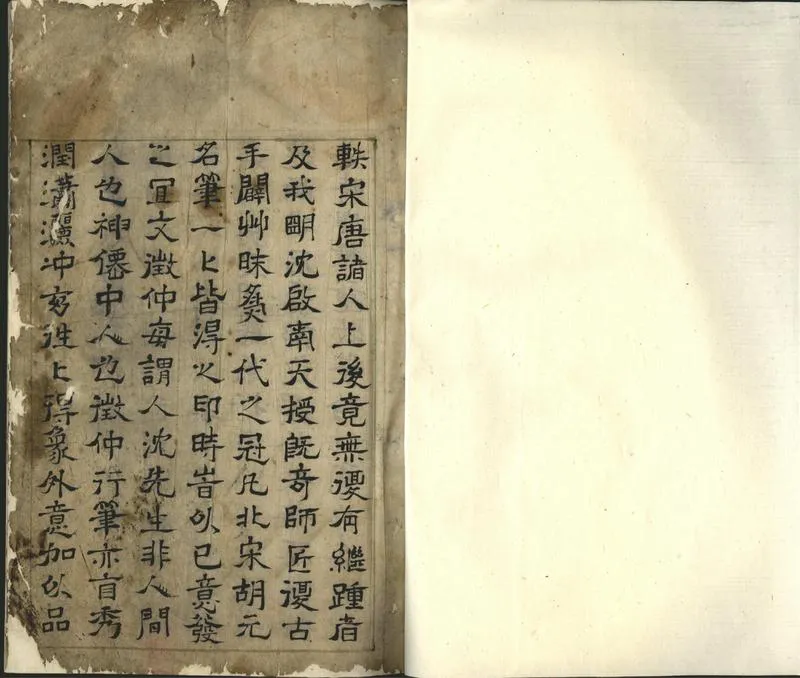 軼宋唐諸人上後竟無復有繼踵者
及我朙沈啟南天授既奇師匠復古
手闢艸昧爲一代之冠凡北宋胡元
名筆一匕皆淂之印時旹以已意發
之冝文徵仲每謂人沈先生非人間
人也神僊中人也徵仲行筆亦肎秀
潤瀟灑冲玄往匕得象外意加以品